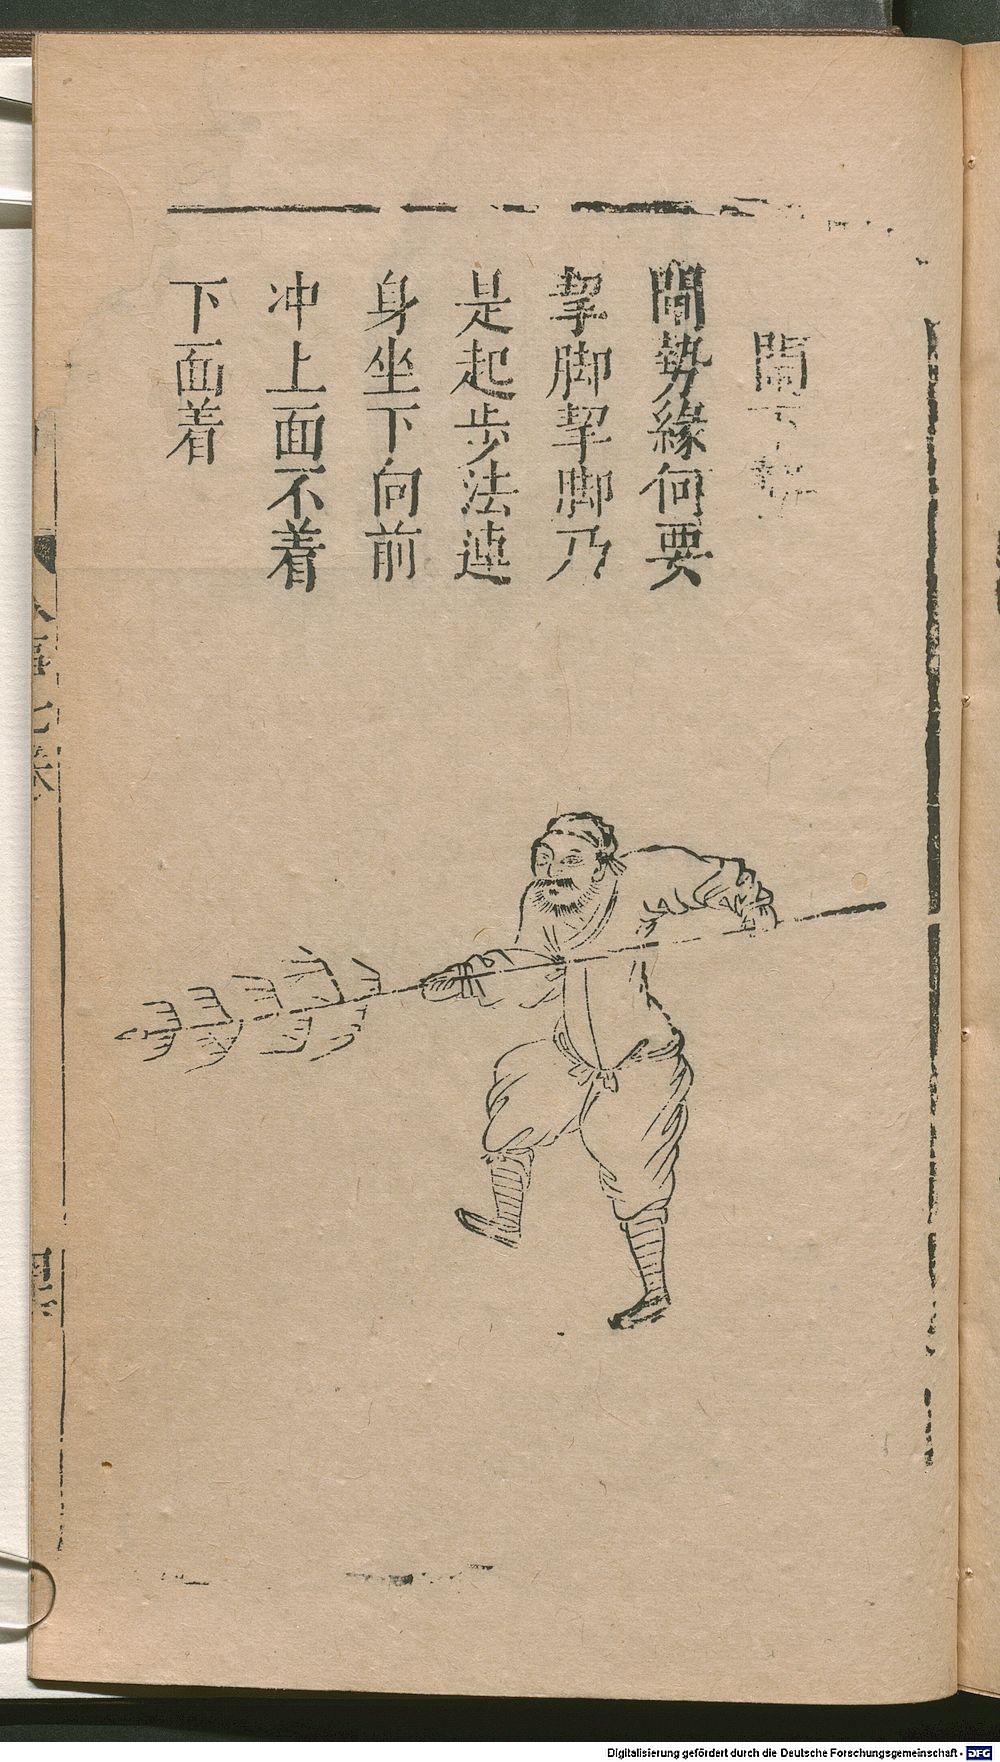 閘下勢
閘勢緣何要
挈脚挈脚乃
是起步法連
身坐下向前
冲上面不着
下面着
Digitalisierung gefördert durch die Deutsche Forschungsgemeinschaft - DFG